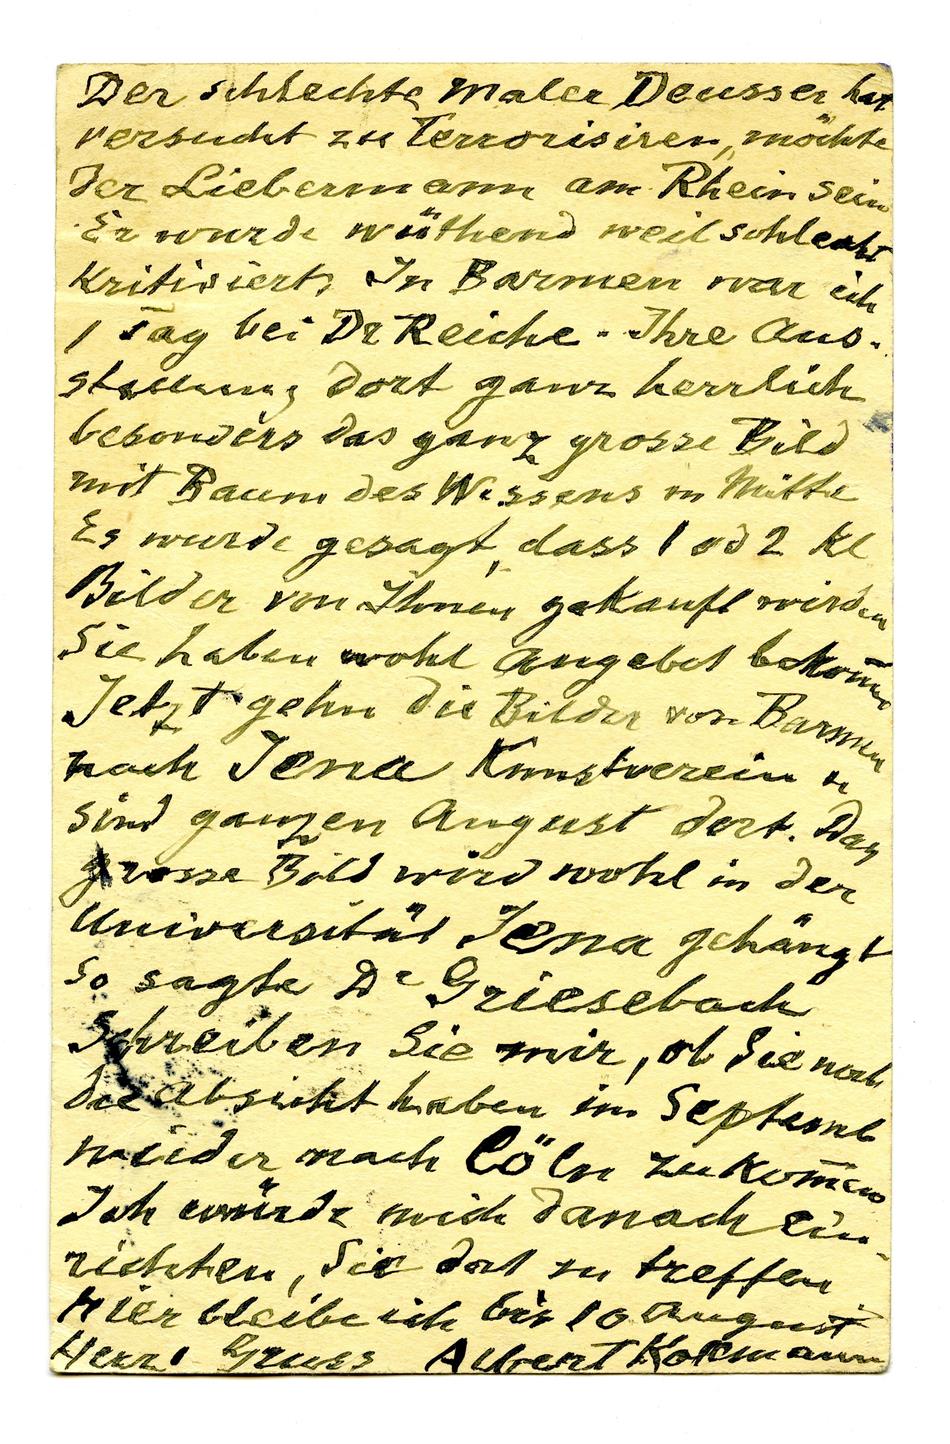 Der schlechte Maler Deusser hat
versucht zu Terrorisiren, möchte
der Liebermann am Rhein sein
Er wurde wüthend weil schlecht
Kritisiert. In Barmen war ich
1 Tag bei Dr Reiche - Ihre Aus-
stellung dort ganz herrlich
besonders das ganz grosse Bild
mit Baum des Wissens in Mitte
Es wurde gesagt, dass 1 od 2 kl
Bilder von Ihnen gekauft würden
Sie haben wohl Angebot bekom̄en
Jetzt gehn die Bilder von Barmen
nach Jena Kunstverein u
sind ganzen August dort. Das
grosse Bild wird wohl in der
Universität Jena gehängt
So sagte Dr Griesebach
Schreiben Sie mir, ob Sie noch
die Absicht haben im Septemb
wieder nach Cöln zu kom̄en
Ich würde mich danach ein-
richten, Sie dort zu treffen
Hier bleibe ich bis 10 August
Herzl Gruss Albert Kollmann